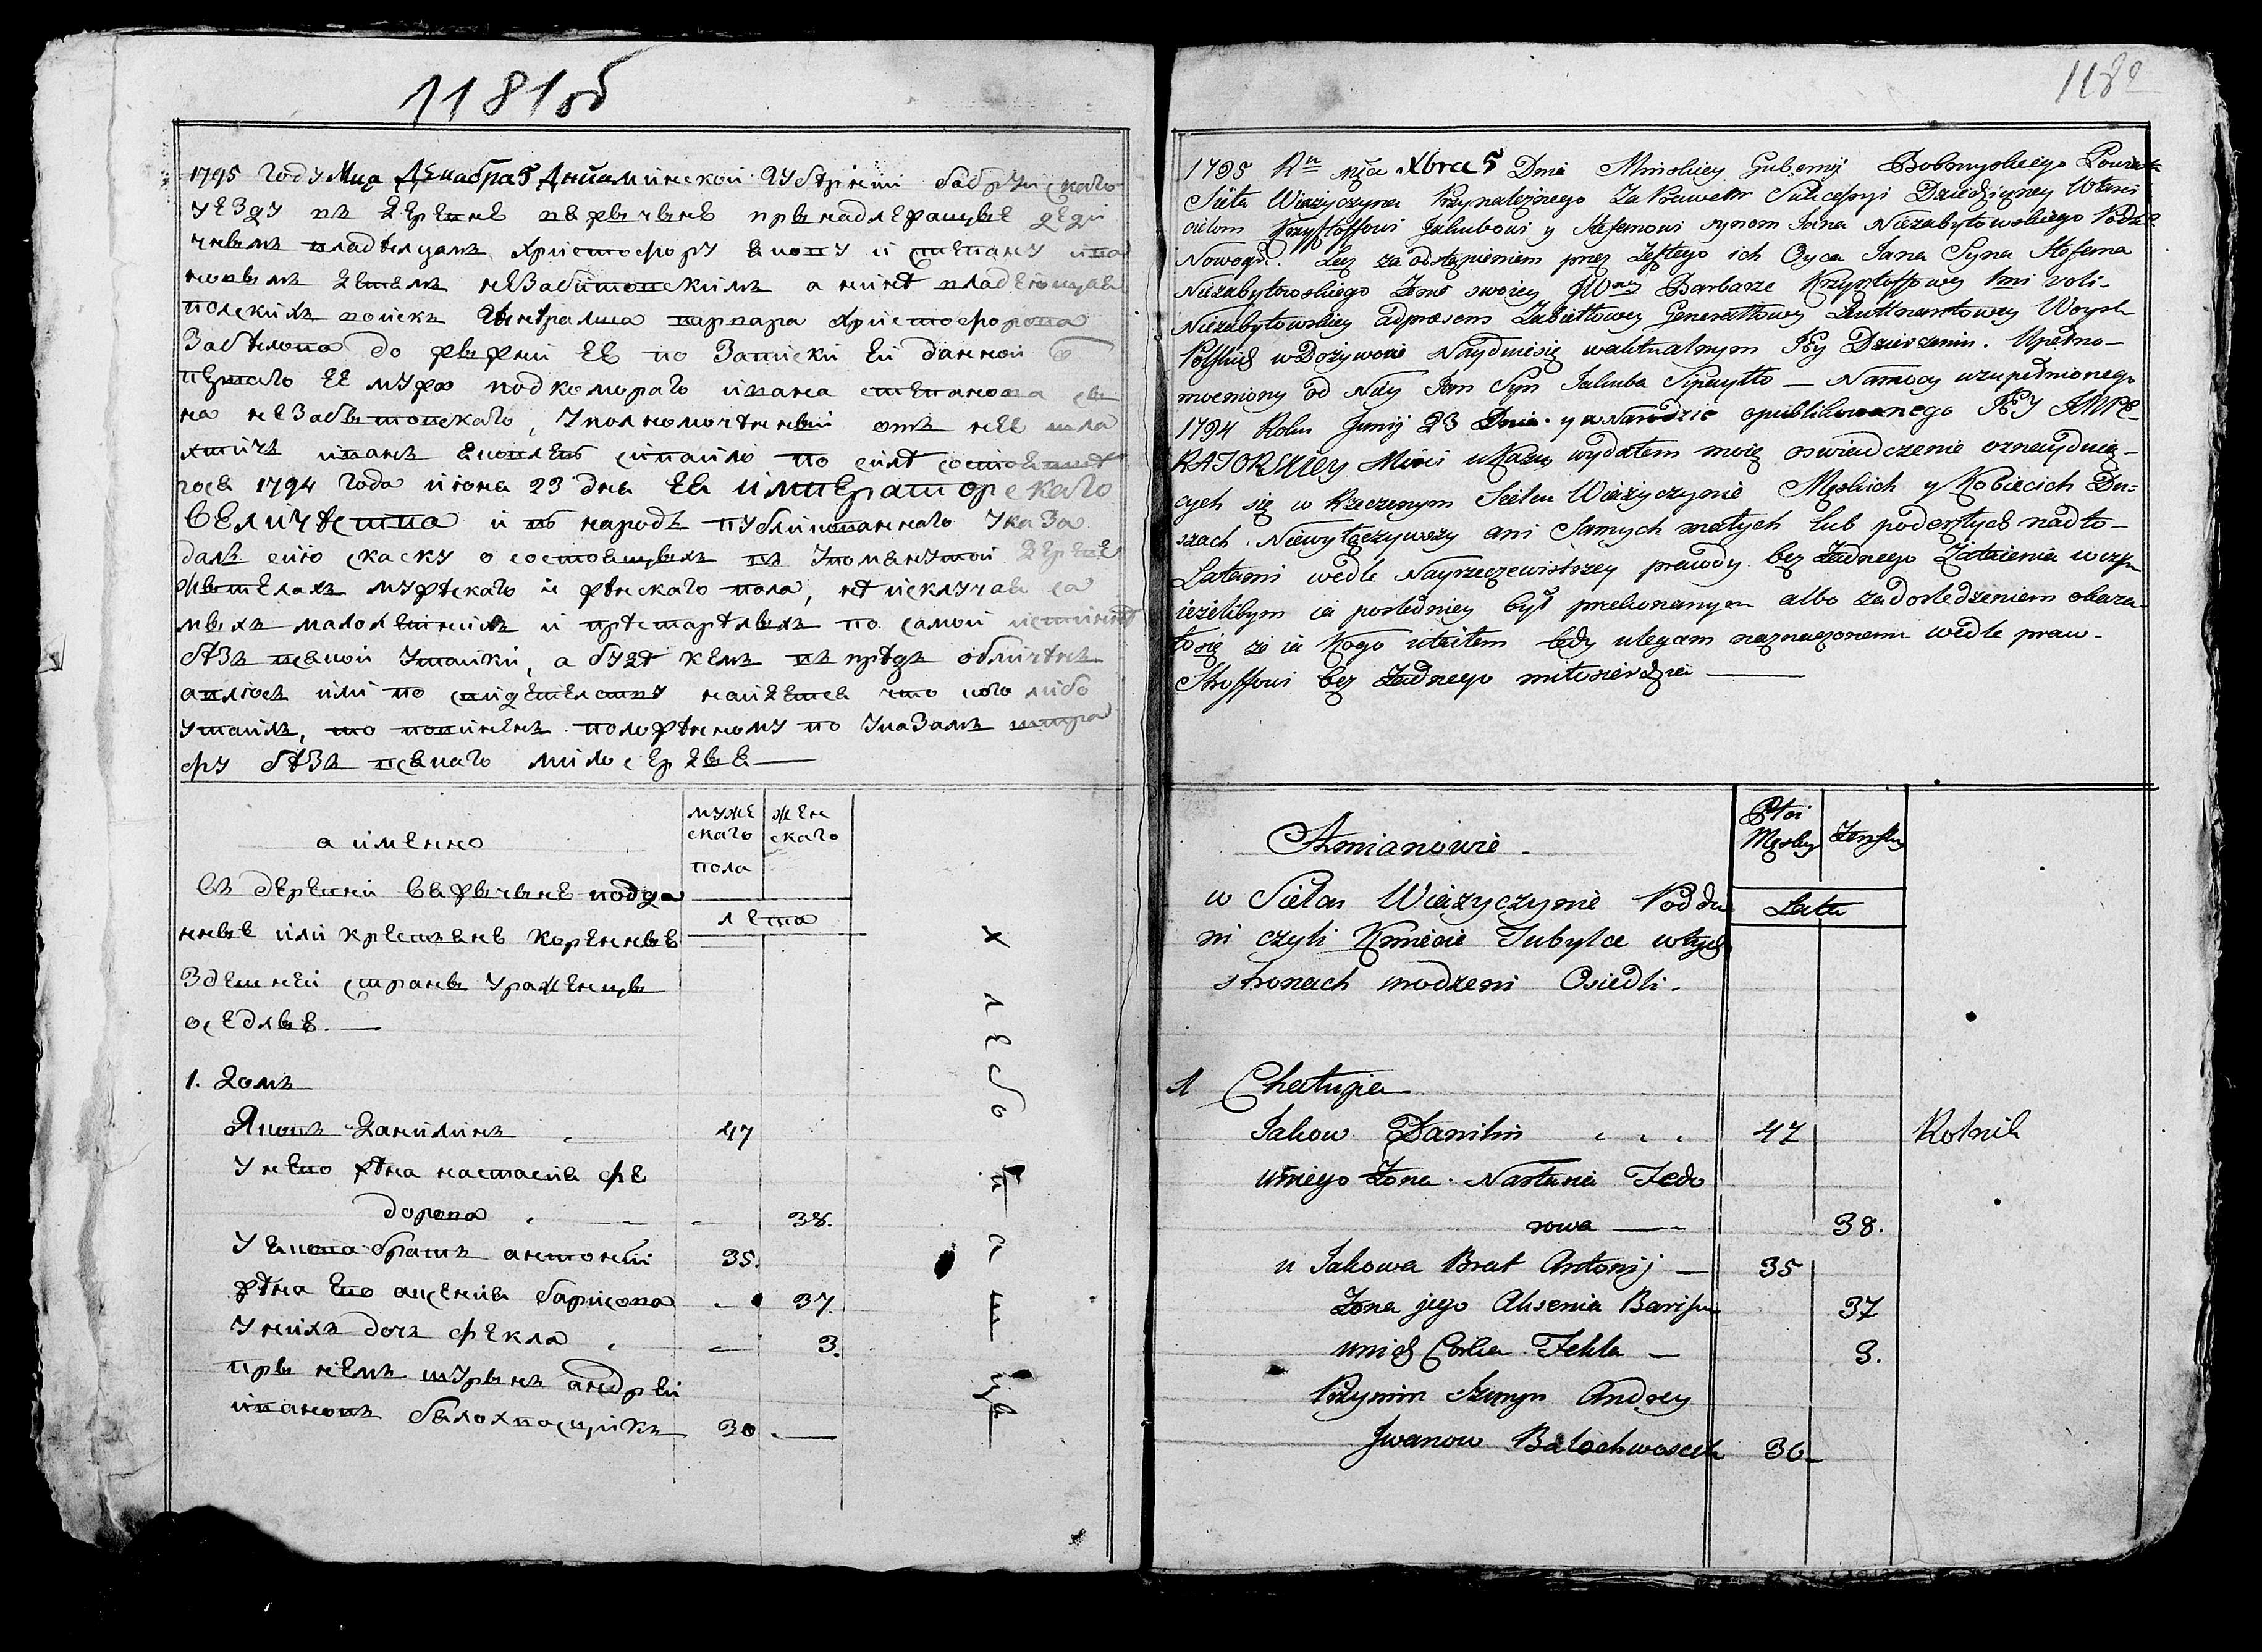 1181об
1795 году Мца Декабра 5 Дниа минской губернии бабруйскаго
уезду въ деревне вежычыне принадлежащые деди
чнымъ владельцамъ христофору якову и степану ива
новымъ детемъ незабитовскимъ а ныне владеющая
полскихъ войскъ генералша варвара христофорова
забелова до жыжни ее по записки ей данной
першаго ее мужа подкомораго ивана степанова сы
на незабытовскаго, уполномоченный отъ нее шла
хтичъ иванъ яковлевъ сипайло по силе состоевшей
1794 года июна 23 дна ея императорскаго
величества и въ народъ публикованнаго указа
далъ сию скаску о состоящыхъ въ упоменутой деревне
жытелахъ мужескаго и женскаго пола, не исключая са
мыхъ малолетнихъ и престарелыхъ по самой истинне
безъ всякой утайки, а буде кемъ въ предъ обличенъ
авлюсь или по свидетелству найдется что кого либо
утаилъ, то повиненъ положенному по указамъ штра
фу безъ всякаго милосердыя —
а именно
муже
скаго
жен
скаго
пола
лета
въ деревни вежычыне подда
нные или крестяне коренные
здешней страны уроженцы
оседлые. —
1. домъ
Яковъ данилинъ 47
у него жена настасия фе
дорова 38.
у якова братъ антоней 35.
жена его аксения барисова 37.
у нихъ дочъ фекла 3.
пры немъ шурынъ андрей
ивановъ балохвосцикъ 30. —
хлебопашец
1182
1795 Rn mca Xbra 5 Dnia Minskiey Gubernij Bobruyskiego Powiatu
Sieła Wieżyczyna Przynależnego Za Prawem Sukcessyi Dziedziczney Własci
cielom Krzysztoffowi Jakubowi y Stefanowi synom Jana Niezabytowskiego Podk
Nowogr. Lecz za odstąpieniem przez Zeszłego ich Oyca Jana Syna Stefana
Niezabytowskiego Żonie swoiey JWney Barbarze Krzysztoffowey 1mi voti
Niezabytowskiey adpraesens Zabiełłowey Generałłowey Leittnantowey Woysk
Polskich w Dożywocie Naydującsię walitualnym Jey Dzierżeniu. Upełno-
mocniony od Niey Jan Syn Jakuba Sipayłło — Namocy uzupełnionego
1794 Roku Junij 23 Dnia y w Narodzie opublikowanego JEY IMPE-
RATORSKIEY Mości ukazu wydałem moię oswiadczenie oznayduią-
cych się w Rzeczonym Sielcu Wieżyczynie Męskich y Kobiecich Du-
szach. Niewyłączywszy ani Samych małych lub podeszłych nadto-
Latami wedle Nayrzeczewistszey prawdy bez Żadnego Zataienia wczym
ieżelibym ia posledniey był przekonanym albo zadosledzeniem okaza
łosię że ia Kogo utaiłem tedy ulegam naznaczonemu wedle praw-
Sztroffowi bez Żadnego miłosierdzia —
Amianowie -
Płci
Męskey
Zeńskey
Lata
w Siełu Wieżyczynie Poddu
ni czyli Kmiecie Tubylce wtych
stronach urodzeni Osiedli.
1 Chałupa
Jakow Danilin 47 Rolnik
uniego Żona Nastasia Fedo
rowa — 38.
u Jakowa Brat Antonij — 35
Żona jego Aksenia Barisowa 37
unich Corka Fekla — 3.
Przynim Szuryn Andrey
Jwanow Bałachwascik 30